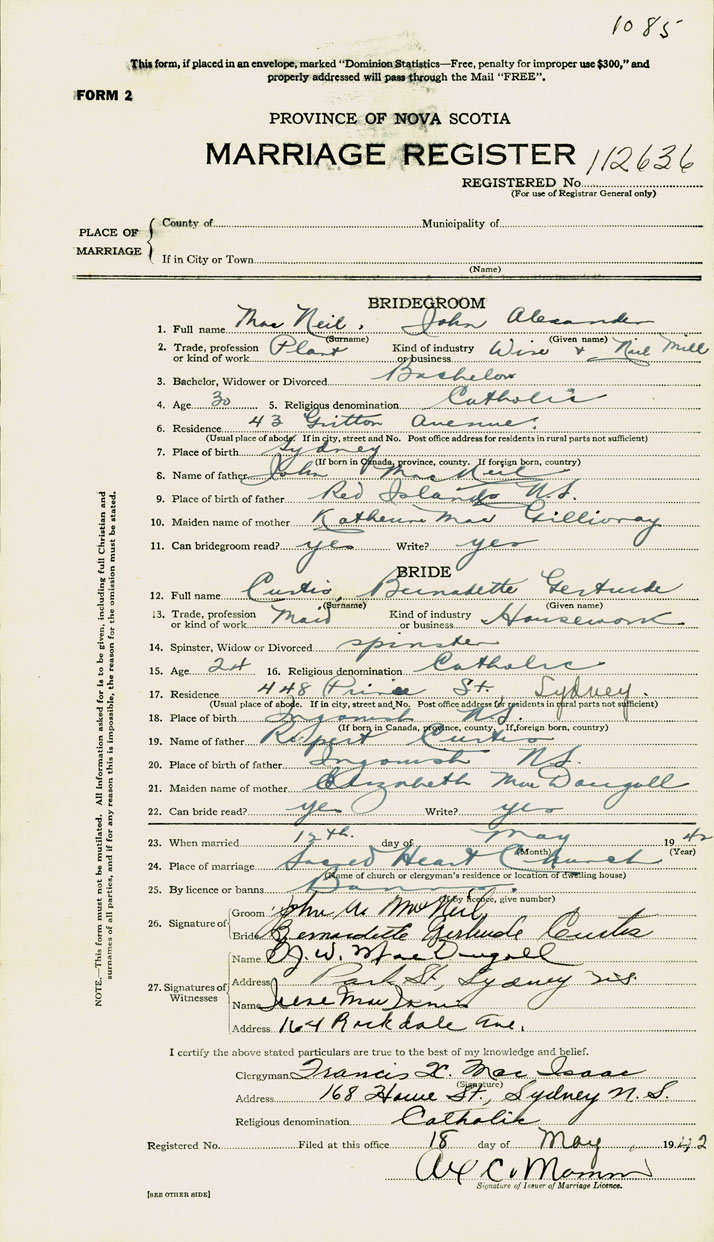 1085
This form, if placed in an envelope, marked "Dominion Statistics—Free, penalty for improper use $300," and
properly addressed will pass through the Mail "FREE".
FORM 2
PROVINCE OF NOVA SCOTIA
MARRIAGE REGISTER 112636
REGISTERED No.
(For use of Registrar General only)
PLACE OF MARRIAGE
County of Municipality of
If in City or Town
(Name)
BRIDEGROOM
1. Full name Mac Neil, John Alexander
(Surname) (Given name)
2. Trade, profession or kind of work Plant Kind of industry or business Wire & Nail Mill
3. Bachelor, Widower or Divorced Bachelor
4. Age 30 5. Religious denomination Catholic
6. Residence 43 Avenue
(Usual place of abode. If in city, street and No. Post office address for residents in rural parts not sufficient)
7. Place of birth Sydney
(If born in Canada, province, county. If foreign born, country)
8. Name of father John MacNeil
9. Place of birth of father Red Islands N.S.
10. Maiden name of mother Katherine Mac Gillivray
11. Can bridegroom read? yes Write? yes
BRIDE
12. Full name Curtis, Bernadette Gertrude
(Surname) (Given name)
13. Trade, profession or kind of work Maid Kind of industry or business Housework
14. Spinster, Widow or Divorced spinster
15. Age 24 16. Religious denomination Catholic
17. Residence 448 Prince St. Sydney.
(Usual place of abode. If in city, street and No. Post office address for residents in rural parts not sufficient)
18. Place of birth Ingonish N.S.
(If born in Canada, province, county. If foreign born, country)
19. Name of father Rupert Curtis
20. Place of birth of father Ingonish N.S.
21. Maiden name of mother Elizabeth MacDougall
22. Can bride read? yes Write? yes
23. When married 12th. day of May 1942
(Month) (Year)
24. Place of marriage Sacred Heart Church
(Name of church or clergyman's residence or location of dwelling house)
25. By licence or banns Banns
(If by licence, give number)
26. Signature of
Groom John A. McNeil
Bride Bernadette Gertrude Curtis
27. Signatures of Witnesses
Name J. W. MacDougall
Address Park St, Sydney N.S.
Name Irene MacInnis
Address 164 Rockdale Ave.
I certify the above stated particulars are true to the best of my knowledge and belief.
Clergyman Francis X. Mac Isaac
(Signature)
Address 168 Howe St., Sydney N.S.
Religious denomination Catholic
Registered No. Filed at this office 18 day of May 1942
Signature of Issuer of Marriage Licence.
[SEE OTHER SIDE]
NOTE.—This form must not be mutilated. All information asked for is to be given, including full Christian and
surnames of all parties, and if for any reason this is impossible, the reason for the omission must be stated.